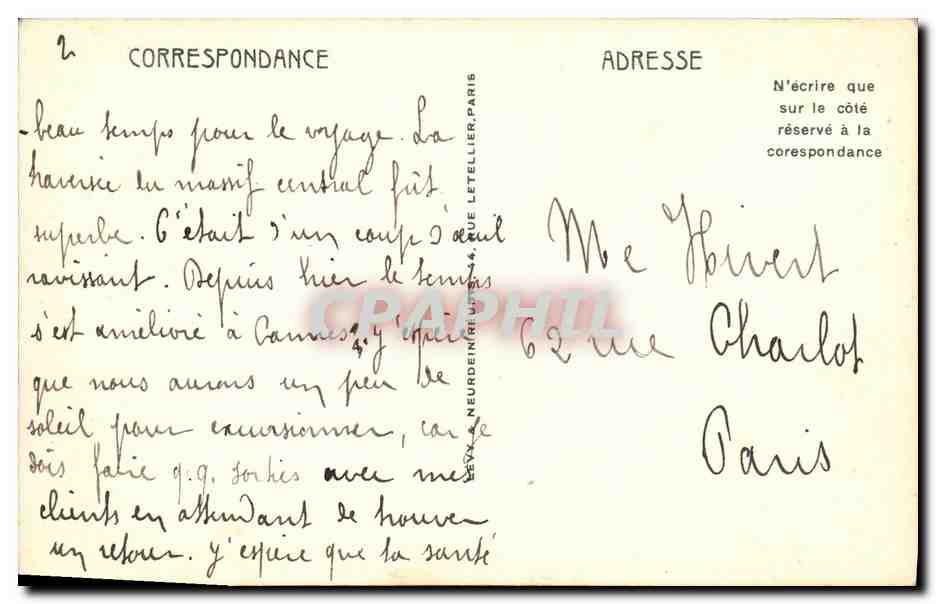 2
CORRESPONDANCE
beau temps pour le voyage. La
traversée du massif central fût
superbe. C'était d'un coup d'œuil
ravissant. Depuis hier le temps
s'est amélioré à Cannes, j'espère
que nous aurons un peu de
soleil pour excursionner, car je
dois faire q.q. sorties avec mes
clients en attendant de trouver
un retour. J'espère que ta santé
LEVY & NEURDEIN REUNIS, 44, RUE LETELLIER, PARIS
ADRESSE
N'écrire que
sur le côté
réservé à la
corespondance
Me Hivert
62 rue Charlot
Paris
CPARHIL